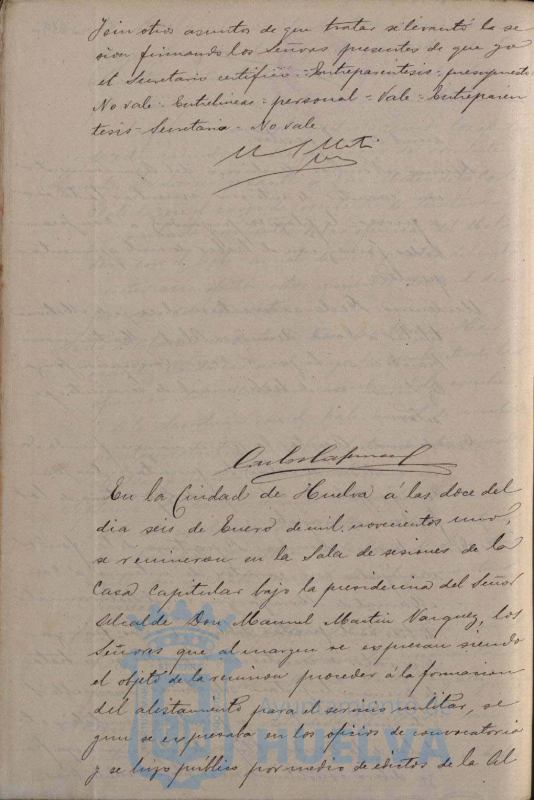 Y sin otros asuntos de que tratar se levantó la se
sion firmando los Señores presentes de que yo
el Secretario certifico = Entreparéntesis = presupuesto
No vale = Entrelineas = personal = Vale = Entreparén
tesis = Secretaria = No vale
En la Ciudad de Huelva á las doce del
dia seis de Enero de mil novecientos uno,
se reunieron en la Sala de sesiones de la
Casa Capitular bajo la presidencia del Señor
Alcalde Don Manuel Martin Vazquez, los
Señores que al margen se expresan siendo
el objeto de la reunion proceder á la formacion
del alistamiento para el servicio militar, se
gun se expresaba en los oficios de convocatoria
y se hizo público por medio de edictos de la Al
HUELVA